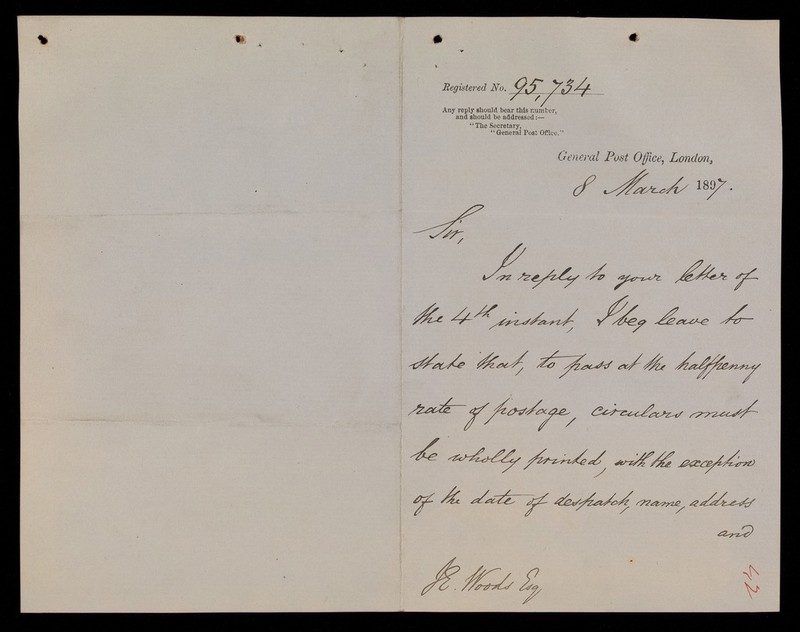 Registered No. 95,734
Any reply should bear this number,
and should be addressed:—
"The Secretary,
"General Post Office."
General Post Office, London,
8 March 1897.
Sir,
In reply to your letter of
the 4th instant, I beg leave to
state that, to pass at the halfpenny
rate of postage, circulars must
be wholly printed, with the exception
of the date of despatch, name, address
and
J.E. Woods Esq.
42